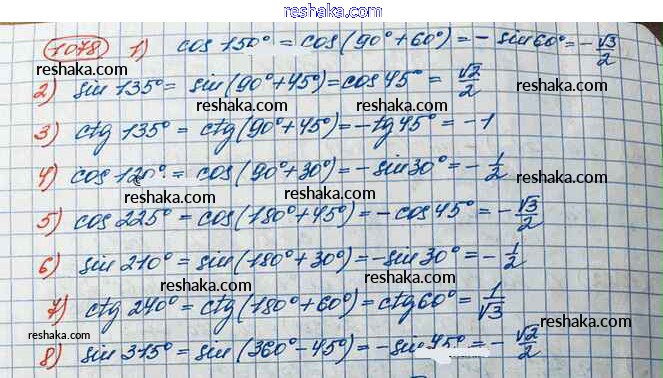 reshaka.com
1078 1) cos 150° = cos(90°+60°) = - sin 60° = - √3/2
reshaka.com reshaka.com
2) sin 135° = sin(90°+45°) = cos 45° = √2/2
reshaka.com reshaka.com
3) ctg 135° = ctg(90°+45°) = - tg 45° = -1
reshaka.com reshaka.com
4) cos 120° = cos(90°+30°) = - sin 30° = - 1/2
reshaka.com reshaka.com
5) cos 225° = cos(180°+45°) = - cos 45° = - √3/2
reshaka.com reshaka.com
6) sin 210° = sin(180°+30°) = - sin 30° = - 1/2
reshaka.com reshaka.com
7) ctg 240° = ctg(180°+60°) = ctg 60° = 1/√3
reshaka.com reshaka.com
8) sin 315° = sin(360°-45°) = - sin 45° = - √2/2
reshaka.com reshaka.com